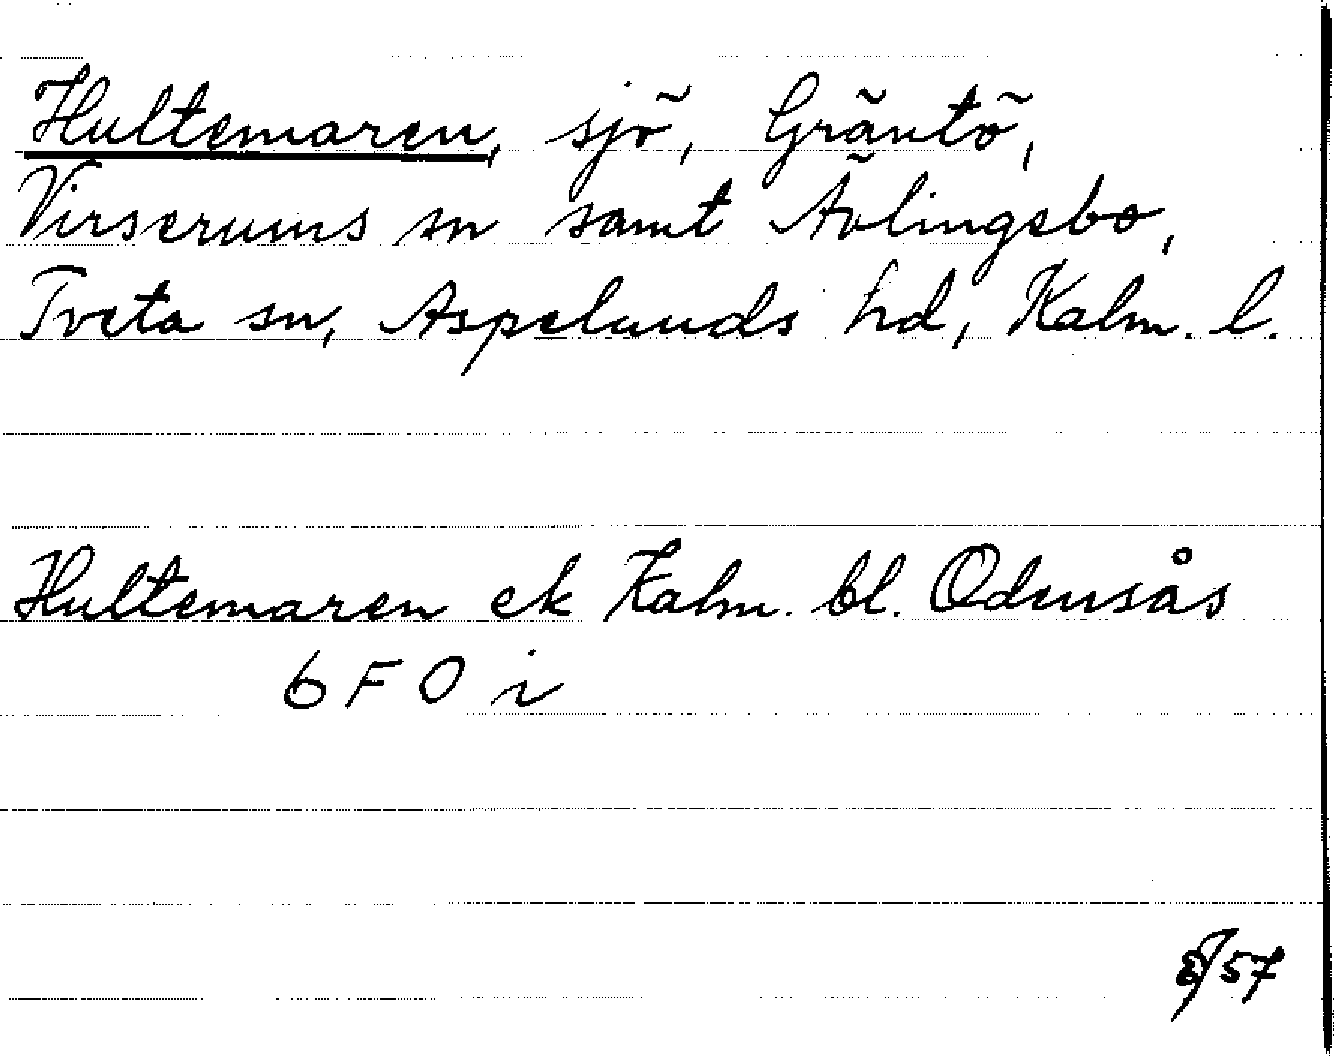 Hultemaren, sjö, Gräntö,
Virserums sn samt Ävlingsbo,
Tveta sn, Aspelands hd, Kalm. l.
Hultemaren ek Kalm. bl. Odensås
6 F O i
57